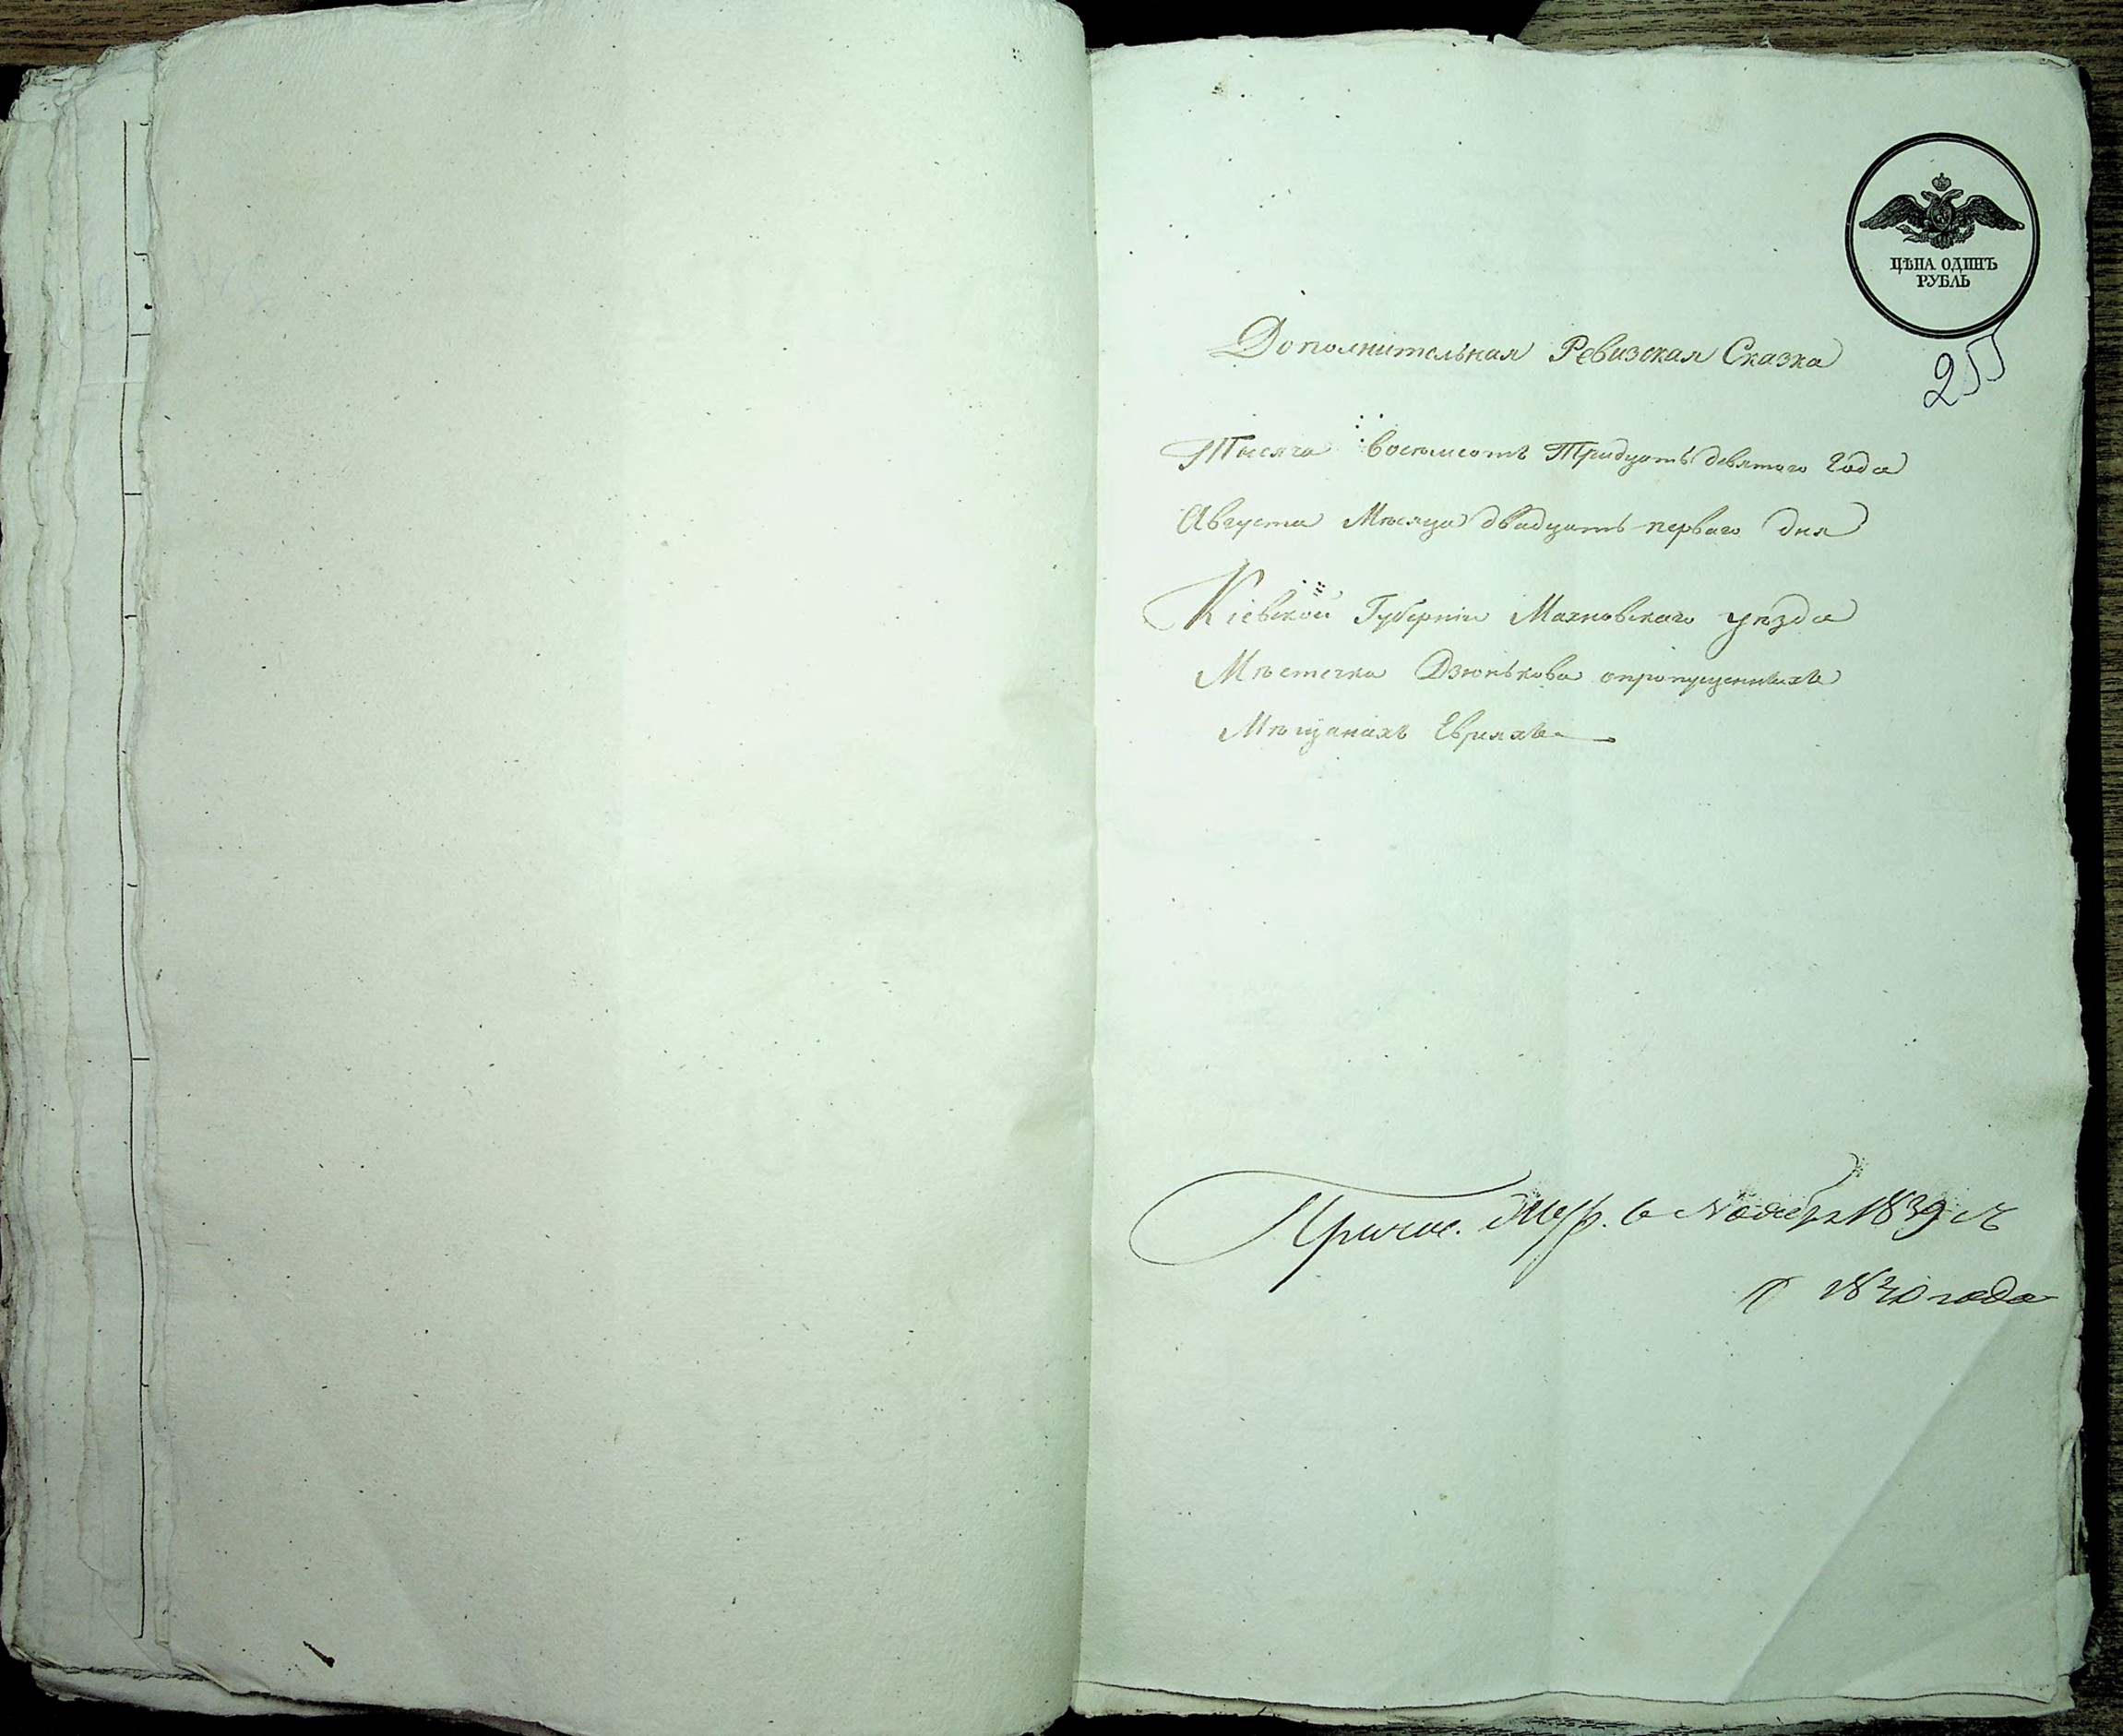 ЦѢНА ОДИНЪ
РУБЛЬ
255
Дополнительная Ревизская Сказка
Тысяча восемсотъ Тридцать девятого года
Августа Мѣсяца двадцать первого дня
Кіевской Губерніи Махновского уѣзда
Мѣстечка Дзюнькова опропущенныхъ
Мѣщанахъ Евреяхъ
Причис. 6 Ноября 1839 съ
1840 года